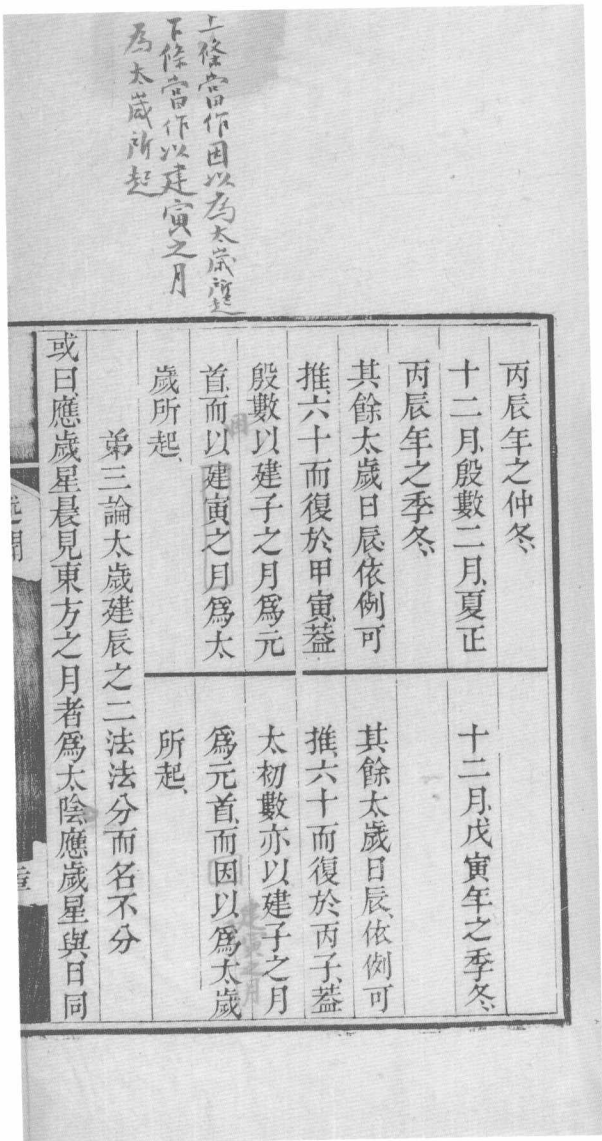 上條當作因以為太歲所起
下條當作以建寅之月
為太歲所起
丙辰年之仲冬、
十二月、殷數二月、夏正
丙辰年之季冬、
其餘太歲日辰、依例可
推、六十而復於甲寅、葢
殷數以建子之月爲元
首、而以建寅之月爲太
歲所起、
十二月、戊寅年之季冬、
其餘太歲日辰、依例可
推、六十而復於丙子、葢
太初數亦以建子之月
爲元首、而因以爲太歲
所起、
弟三論太歲建辰之二法法分而名不分
或曰、應歲星晨見東方之月者爲太陰、應歲星與日同
因
建寅之月